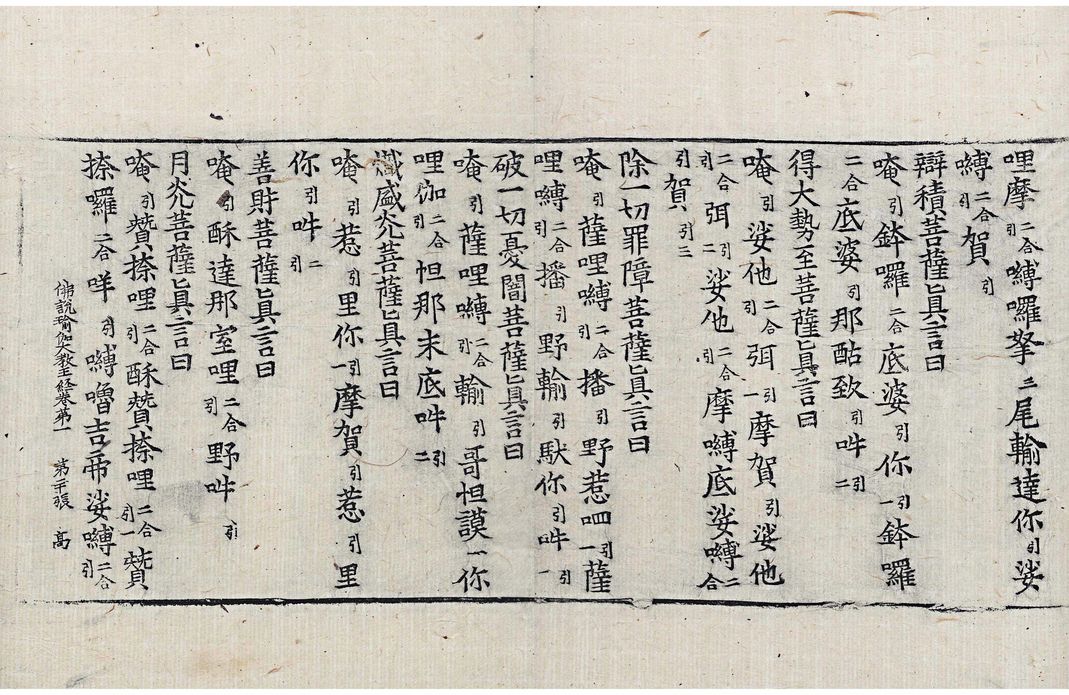 哩摩引二合嚩囉拏三尾輸達你引娑
嚩二合引賀引
辯積菩薩真言曰
唵引鉢囉二合底婆引你引一鉢囉
二合底婆引那酤致引吽引二
得大勢至菩薩真言曰
唵引娑他二合引弭一摩賀引娑他
二合引弭引二娑他二合引摩嚩底娑嚩二合
引賀引三
除一切罪障菩薩真言曰
唵引薩哩嚩二合引播引野惹呬引一薩
哩嚩二合引播引野輸引馱你引吽引一
破一切憂闇菩薩真言曰
唵引薩哩嚩二合引輸引哥怛謨一你
哩伽二合引怛那末底吽引二
熾盛光菩薩真言曰
唵引惹引里你一摩賀引惹引里
你引吽引二
善財菩薩真言曰
唵引酥達那室哩二合引野吽引
月光菩薩真言曰
唵引贊捺哩二合引酥贊捺哩二合引一贊
捺囉二合咩引嚩嚕吉帝娑嚩二合引
佛說瑜伽大教王經卷第一 第二十張 高